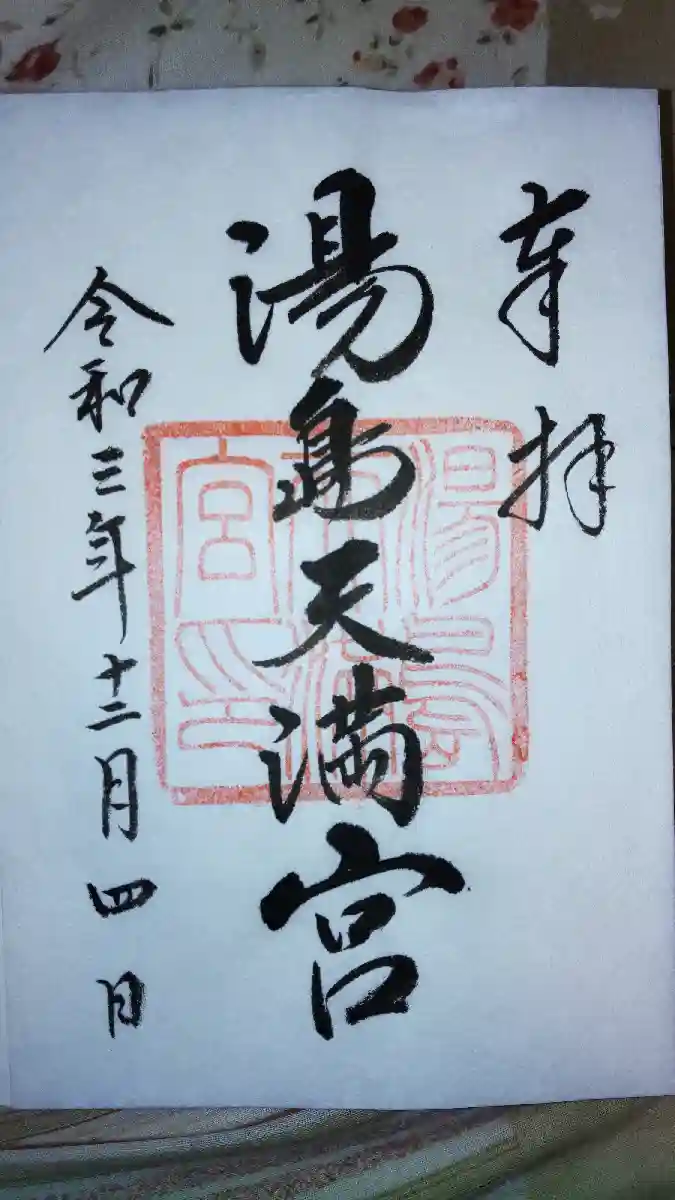 奉拝
湯島天満宮
令和三年十二月四日
湯島天満宮印